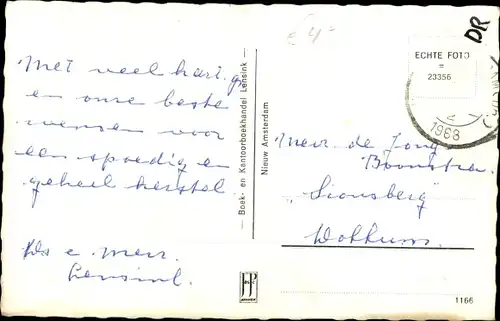 Met veel hart. gr
en onze beste
wensen voor
een spoedig en
geheel herstel.
Ds e. Mevr.
Lensink.
— Boek- en Kantoorboekhandel Lensink —
Nieuw Amsterdam
£ 4
DR
ECHTE FOTO
=
23356
1968
Mevr. de Jong
Boonstra
"Sionsberg"
Dokkum.
JP
1166